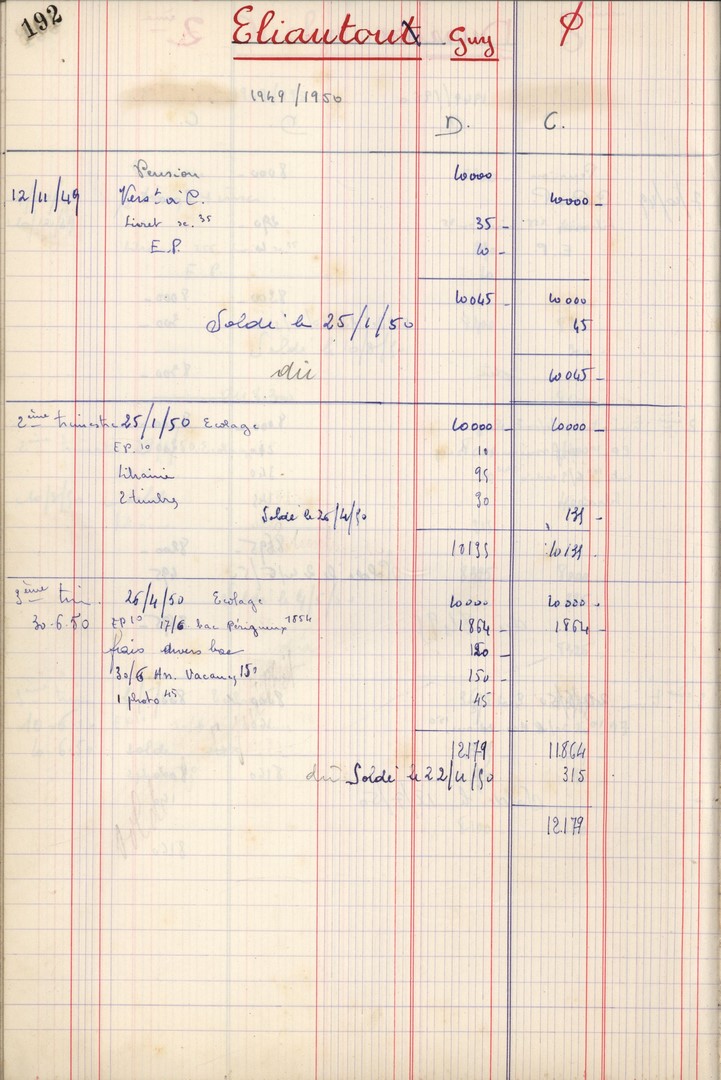 192
Eliautout Guy
1949/1950
D. C.
Pension 10000
12/11/49 Versᵗ à C. 10000 -
Livret sc. 35 35 -
E.P. 10 -
10045 10000
Soldé le 25/1/50 45
dû 10045 -
2ème trimestre 25/1/50 Ecolage 10000 - 10000 -
EP. 10 10
Librairie 95
2 timbres 30
Soldé le 26/4/50 135 -
10135 10135
3ème trim. 26/4/50 Ecolage 10000 10000 -
30-6-50 EP 10 17/6 bac Périgueux 1854 1864 - 1864 -
frais divers bac 120 -
30/6 An. Vacances 150 150 -
1 photo 45 45
12179 11864
dû Soldé le 22/11/50 315
12179